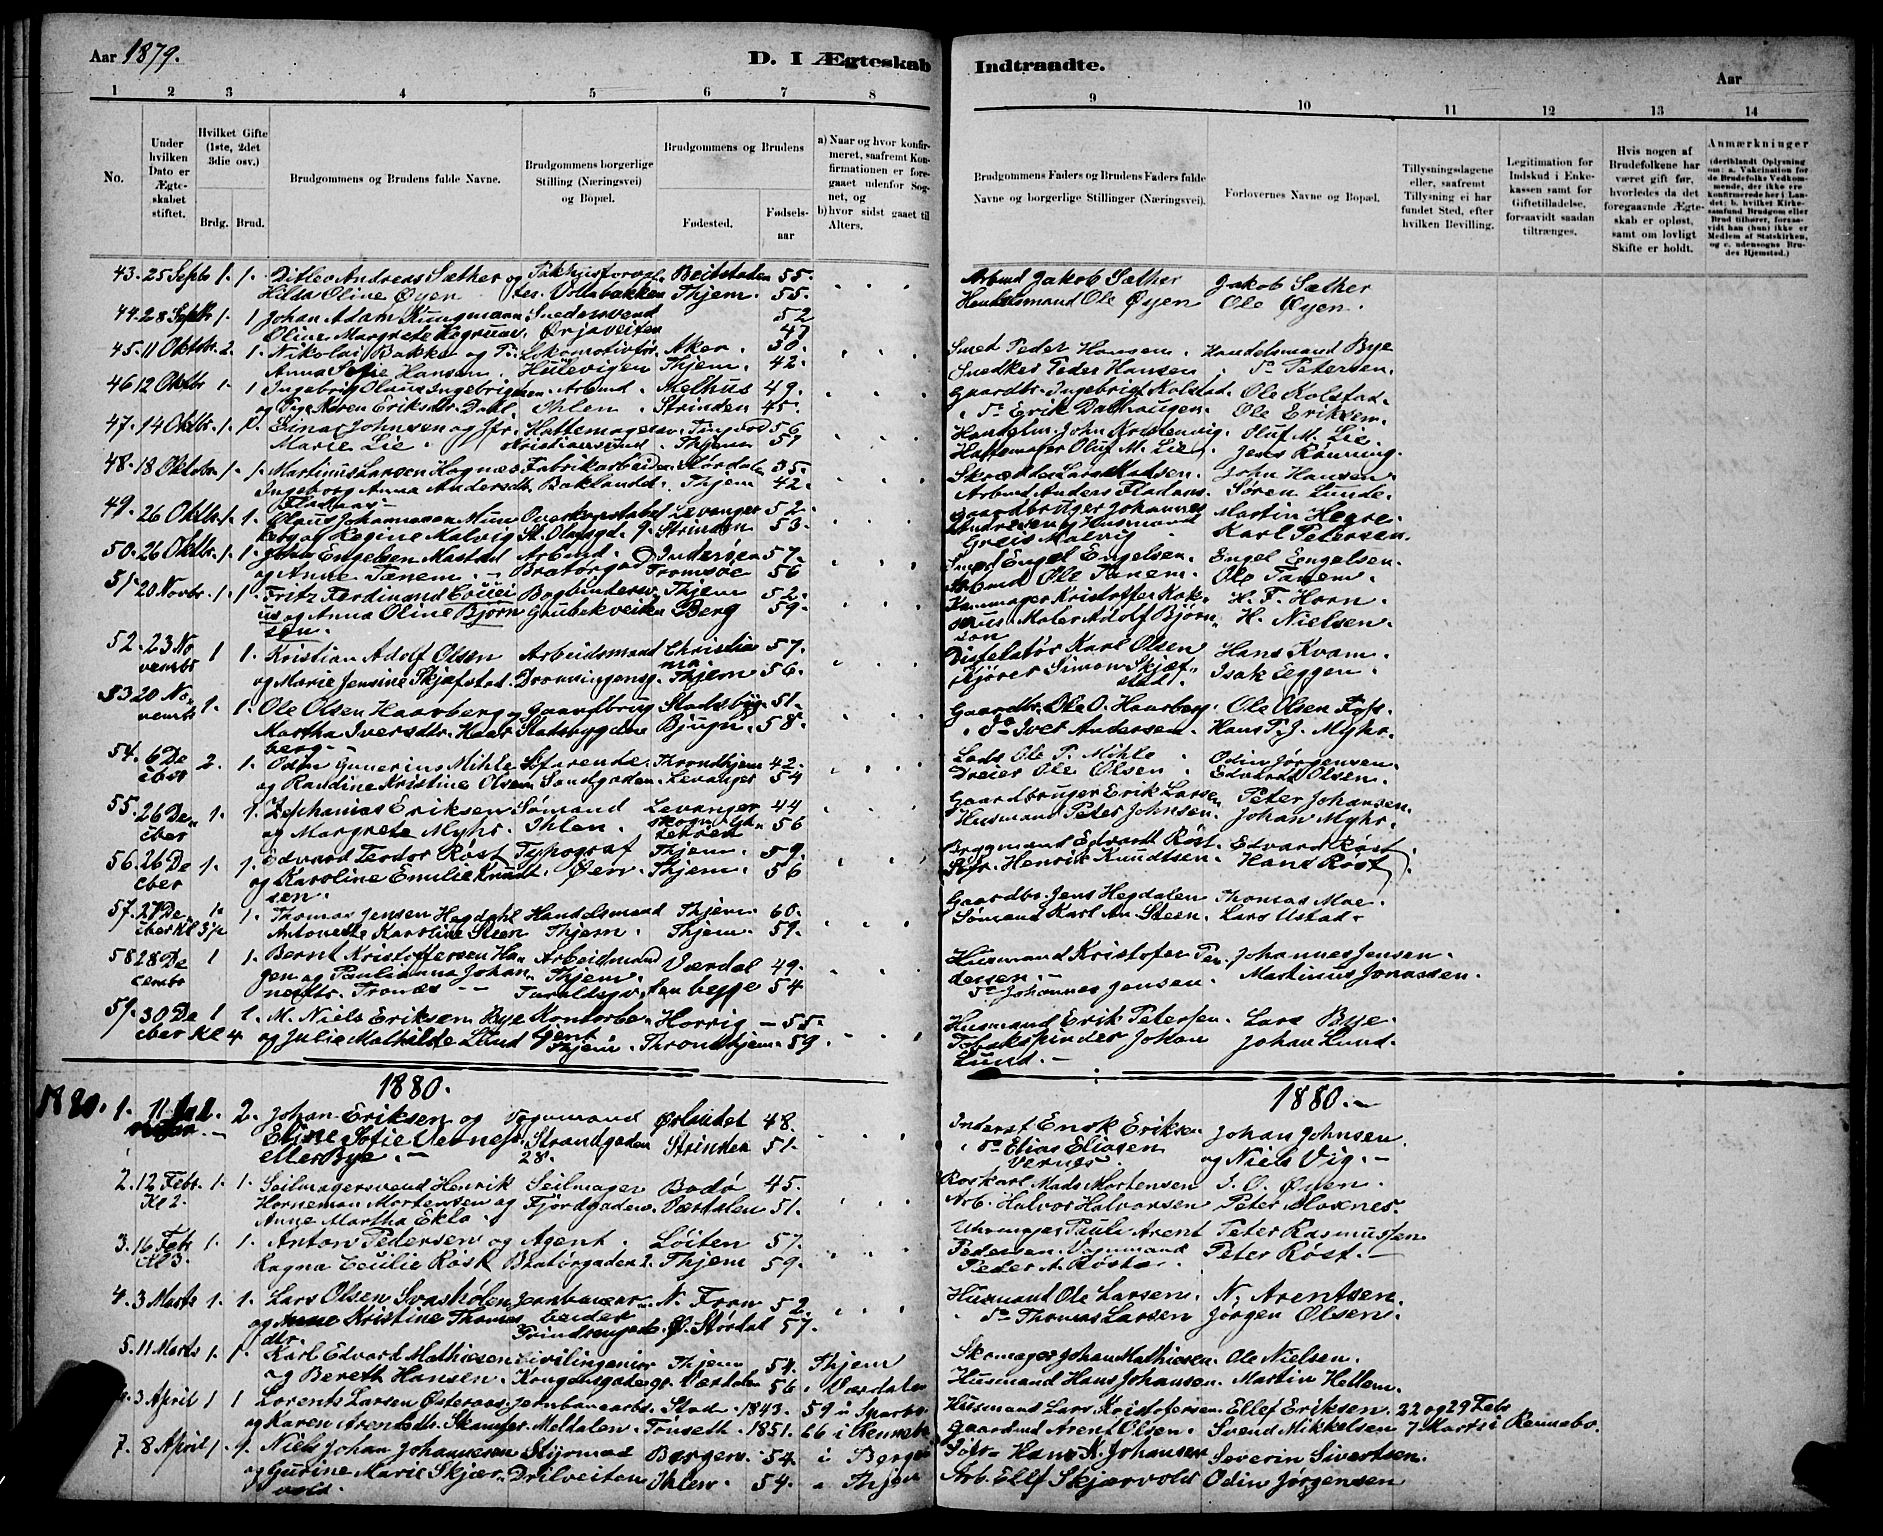 Aar 1879.
D. I Ægteskab Indtraadte.
Aar
1 2 3 4 5 6 7 8 9 10 11 12 13 14
No.
Under hvilken Dato er Ægteskabet stiftet.
Hvilket Gifte (1ste, 2det 3die osv.)
Brdg. Brud.
Brudgommens og Brudens fulde Navne.
Brudgommens borgerlige Stilling (Næringsvei) og Bopæl.
Brudgommens og Brudens
Fødested. Fødselsaar
a) Naar og hvor konfirmeret, saafremt Konfirmationen er foregaaet udenfor Sognet, og
b) hvor sidst gaaet til Alters.
Brudgommens Faders og Brudens Faders fulde Navne og borgerlige Stillinger (Næringsvei).
Forlovernes Navne og Bopæl.
Tillysningsdagene eller, saafremt Tillysning ei har fundet Sted, efter hvilken Bevilling.
Legitimation for Indskud i Enkekassen samt for Giftetilladelse, forsaavidt saadan tiltrænges.
Hvis nogen af Brudefolkene har været gift før, hvorledes da det foregaaende Ægteskab er opløst, samt om lovligt Skifte er holdt.
Anmærkninger (deriblandt Oplysning om: a. Vakcination for de Brudefolks Vedkommende, der ikke ere konfirmerede her i Landet; b. hvilket Kirkesamfund Brudgom eller Brud tilhører, forsaavidt han (hun) ikke er Medlem af Statskirken, og c. udensogns Brudes Hjemsted.)
43. 25 Septb 1. 1. Ditlev Andreas Sæther og Pakhusforval Beitstaden 55. Arbmd Jakob Sæther Jakob Sæther
Hilda Oline Øyen ter. Vollabakken Thjem. 55. Handelsmand Ole Øyen Ole Øyen.
44. 28 Septb 1. 1 Johan Adam Klingmann Snedkersvend 52
Oline Margrete Ørjaveiten 47
45. 11 Oktbr. 2. 1. Nikolai Bakke og P. Lokomotivfør. Aker. 30. Smed Peder Hansen. Handelsmand Bye
Anna Sofie Hansen. Hullevigen Thjem. 42. Snedker Peder Hansen. P. Petersen.
46 12 Oktbr 1. 1 Ingebrigt Olaus Ingebrigtsen Arbmd. Melhus 49. Gaardbr. Ingebrigt Kolstad. Ole Kolstad.
og Pige Karen Eriksdtr. Dahl. Ihlen. Strinden 45. do Erik Dalhaugen. Ole Eriksen.
47. 14 Oktbr. 1. 1. Einar Johnsen og Jfr. Hattemager. Tingvold 56 John Kristenvig. Oluf M. Lie.
Marie Lie. Kristianssund. Thjem. 57 Hattemager Oluf M. Lie. Jens Rönning.
48. 18 Oktobr. 1. 1. Martinus Larsen Hognes Fabrikarbeider Størdalen 35. Skrædder Lars Madsen. John Hansen
Ingeborg Anna Andersdtr. Baklandet. Thjem 42. Arbmd Anders Fladaas. Søren Lunde.
Fladaas
49. 26 Oktbr. 1. 1. Olaus Johannesen Mun Overkonstabel Levanger 52. Gaardbruger Johannes Martin Hegre.
keby og Regine Malvig St. Olavsgd. 9. Strinden 53. Andresen og Husmand Karl Petersen.
Greis Malvig
50. 26 Oktbr. 1. 1. John Engelsen Mastad Arbmd. Inderøen 57. Smed Engel Engelsen. Engel Engelsen.
og Anne Tanem. Bratørgad. Tromsøe 56 Arbmd Ole Tanem. Ole Tanem.
51. 20 Novbr. 1. 1 Fritz Ferdinand Bogbindersv. Thjem 52. Kammager Kristoffer H. F. Horn.
us og Anna Oline Bjørn Grubbekveiten Berg 59. Maler Adolf Bjørn H. Nielsen.
sen. son
52. 23 No 1 1. Kristian Adolf Olsen Arbeidsmand Christia 57. Destelatör Karl Olsen Hans Kvam.
vembr og Marie Jensine Skjefstad. Dronningensg. nia Thjem 56. Kjører Simon Skjef Isak Eggen.
stad.
53. 20 No 1. 1. Ole Olsen Haarberg og Gaardbrug Stadsbyg. 51. Gaardbr. Ole O. Haarberg. Ole Olsen Foss.
vembr Martha Iversdtr. Haar Stadsbygden Bjugn. 58. do Iver Andersen. Hans P. J. Myhr.
berg
54. 6 De 2. 1. Odin Gunerius Mihle Söfarende. Throndhjem 42. Lods Ole P. Mihle. Odin Jørgensen.
cber og Randine Kristine Olsen Sandgaden. Levanger 54 Dreier Ole Olsen. Edvard Olsen.
55. 26 De 1. 1. Zephanias Eriksen Sömand Levanger 44 Gaardbruger Erik Larsen Peter Johansen.
cber og Margrete Myhr. Ihlen. Skogn 56 Husmand Peter Johnsen. Johan Myhr.
56. 26 De 1. 1. Edvard Teodor Røst Typograf Thjem. 59. Bryggmand Edvardt Röst. Edvard Røst.
cber og Karoline Emilie Knudt Øen. Thjem. 56 Henrik Knudtsen. Hans Røst.
sen.
57. 27 De 1. 1. Thomas Jensen Hegdahl Handelsmand Thjem 60. Gaardbr. Jens Hegdalen Thomas Moe.
cber Kl 3 Antonette Karoline Steen Thjem. Thjem. 59. Sömand Karl An. Steen. Lars Ustad.
58 28 De 1 1. Bernt Kristoffersen Ha Arbeidmand Værdal 49. Husmand Kristofer Pe Johannes Jensen.
cembr gen og Paulianna Johan Thjem. dersen.
nesdtr. Tronæs Taraldsgv. san begge 54 do Johannes Jensen. Martinus Jonassen.
59. 30 De 1 1. M. Niels Eriksen Bye Kontorbe Horrig 55. Husmand Erik Petersen. Lars Bye.
cber Kl 4 og Julie Mathilde Lund tjent Thjem. Throndhjem. 59. Tobakspinder Johan Johan Lund.
Lund.
1880. 1880.
1880. 1. 11 2. 2. Johan Eriksen og Vognmand Ørlandet 48. Inderst Enok Eriksen Johan Johnsen
Eline Sofie Vernes Strandgaden Strinden 51. do Elias Eliasen og Niels Vig.
eller Bye. 28. Vernes.
2. 12 Febr. 1. 1. Seilmagersvend Henrik Seilmager Bodø 45. Roskarl Mads Mortensen J. O. Øyen.
Kl 2. Horneman Mortensen og Fjordgaden. Værdalen 51. Arb. Halvor Halvorsen Peter Moxnes.
Anne Martha Eklo.
3. 16 Febr 1. 1. Anton Pedersen og Agent. Löiten 57. Uhrmager Arent Peter Rasmussen
Kl 3. Ragna Cecilie Røst Bratörgaden Thjem 59. Pedersen. Vognmand Peter Røst.
Peder A. Røst.
4. 3 Marts 1. 1. Lars Olsen Jernbanear N. Fron 52. Husmand Ole Larsen. N. Arentsen.
og Anne Kristine Thomas beider Ø. Stördal 57. do Thomas Larsen Jörgen Olsen.
dtr.
5. 11 Marts 1. 1. Karl Edvard Mathiesen Civilingeniør Thjem 54. Thjem Skomager Johan Mathiesen. Ole Nielsen.
og Bereth Hansen. Kongensgade Værdalen 56. Værdalen Husmand Hans Johansen. Martin Hellem.
6. 3 April 1 1 Lorents Larsen Österaas Jernbanearb. Stod 1843. 59 i Sparbu Husmand Lars Kristofersen. Ellef Eriksen. 22 og 29 Feb
og Karen Arentsdtr. Skamfer Meldalen. Tönseth 1851. 66 i Rennebo Gaardmd Arent Olsen. Svend Mikkelsen 7 Marts i Rennebo.
7. 8 April 1. 1. Niels Johan Johannesen Styrmad Bergen. 54. i Bergen Hans N. Johansen Severin Sivertsen.
og Gurine Marie Skjær Prilveiten Ihlen. 54. " Thjem Arb. Ellef Skjærvold Odin Jørgensen
vold.